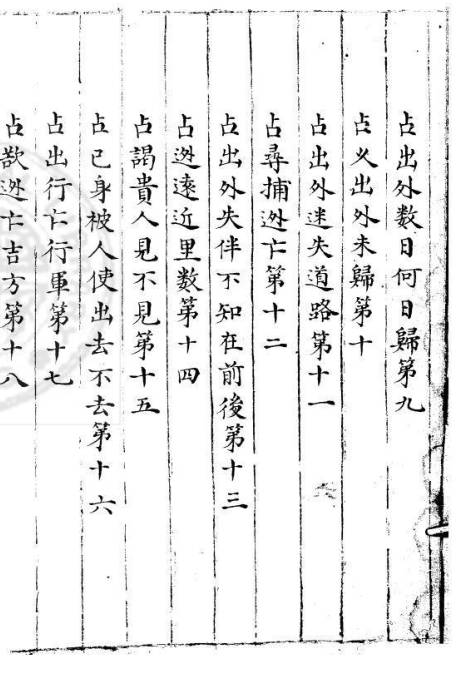 占出外数日何日歸第九
占乂出外未歸第十
占出外迷失道路第十一
占尋捕迯亡第十二
占出外失伴不知在前後第十三
占迯遠近里数第十四
占謁貴人見不見第十五
占己身被人使出去不去第十六
占出行亡行軍第十七
占欲迯亡吉方第十八